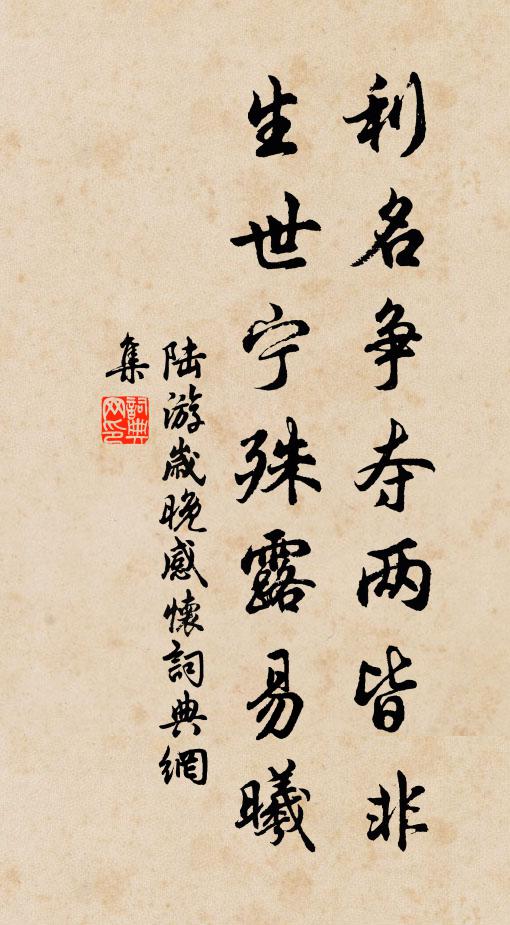 利名争夺两皆非
生世宁殊露易曦
陆游岁晚感懷詞典網
集
詞典网印